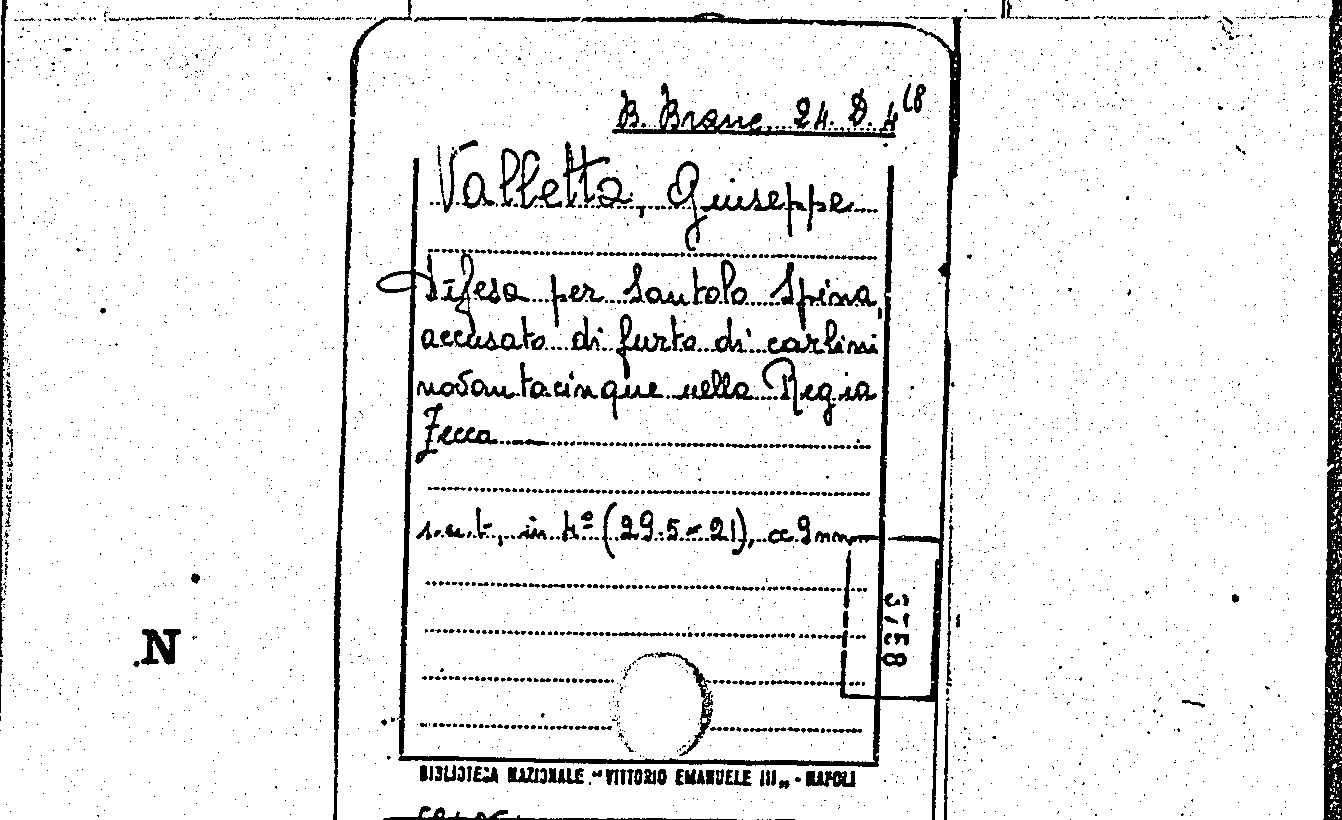 B. Branc. 24. D. 4(8
Valletta, Giuseppe
Difesa per Santolo Spina,
accusato di furto di carlini
novantacinque nella Regia
Zecca
s.n.t., in 4º (29.5 x 21), cc 9 nn
3758
N
BIBLIOTECA NAZIONALE "VITTORIO EMANUELE III" - NAPOLI